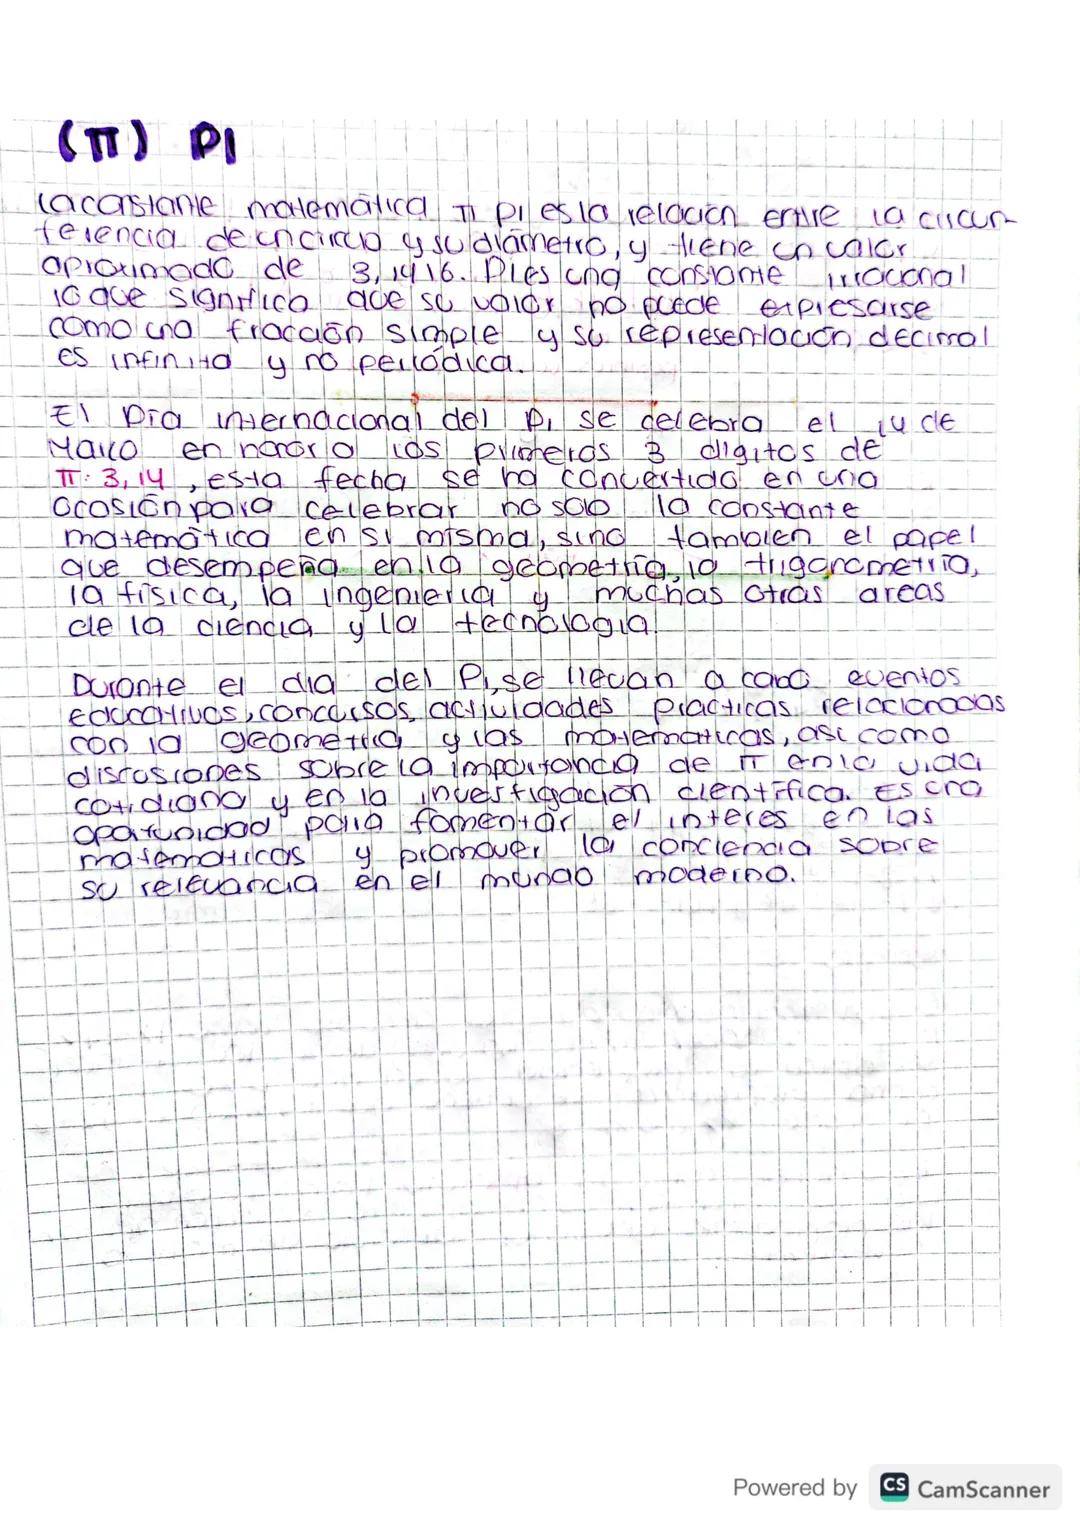 (π) PI
La constante matemática π pi es la relación entre la circun-
ferencia de un circulo y su diámetro, y tiene un valor
aproximado de 3,1416. PI es una constante irracional
lo que significa que su valor no puede expresarse
como una fracción simple y su representación decimal
es infinita y no periódica.
El Día internacional del Pi se celebra el 14 de
Marzo en honor a los primeros 3 digitos de
π: 3,14, esta fecha se ha convertido en una
ocasión para celebrar no solo la constante
matemática en si misma, sino tambien el papel
que desempeña en la geometría, la trigonometría,
la física, la ingenieria y muchas otras areas
de la ciencia y la tecnologia.
Durante el dia del Pi, se llevan a cabo eventos
educativos, concursos, actividades practicas relacionadas
con la geometria y las matematicas, asi como
discusiones sobre la importancia de π en la vida
cotidiana y en la investigación científica. Es una
oportunidad para fomentar el interes en las
matematicas y promover la conciencia sobre
su relevancia en el mundo moderno.
Powered by CS CamScanner